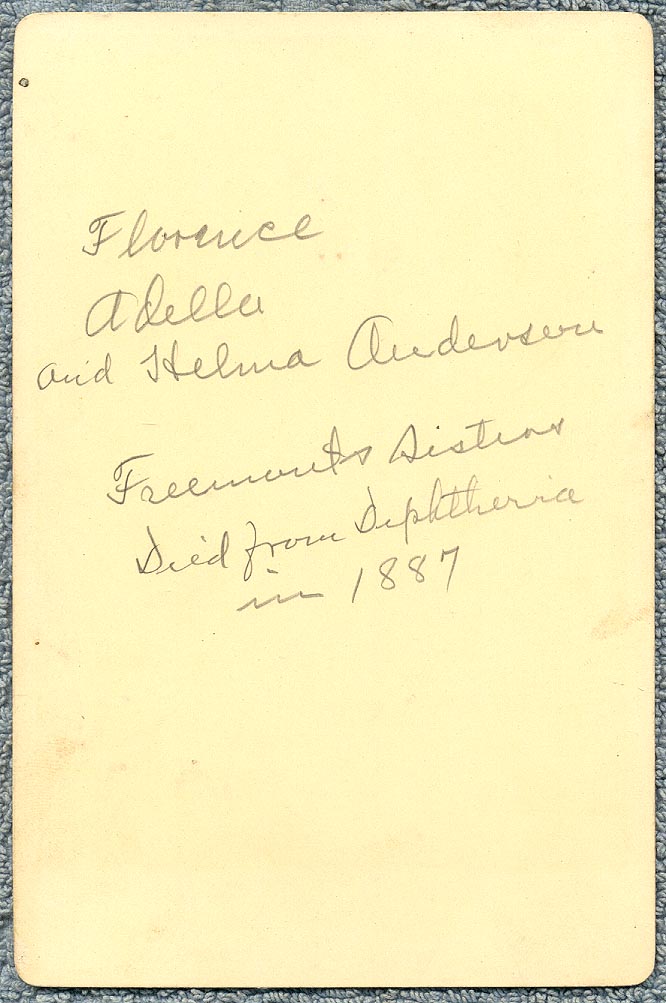 Florence
Adella
and Helma Anderson
Freemonts Sisters
Died from Diphtheria
in 1887